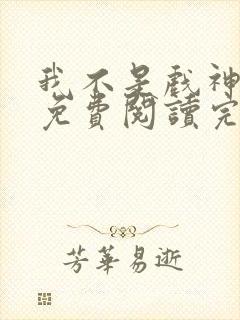 我不是戲神
免費閱讀完
芳華易逝